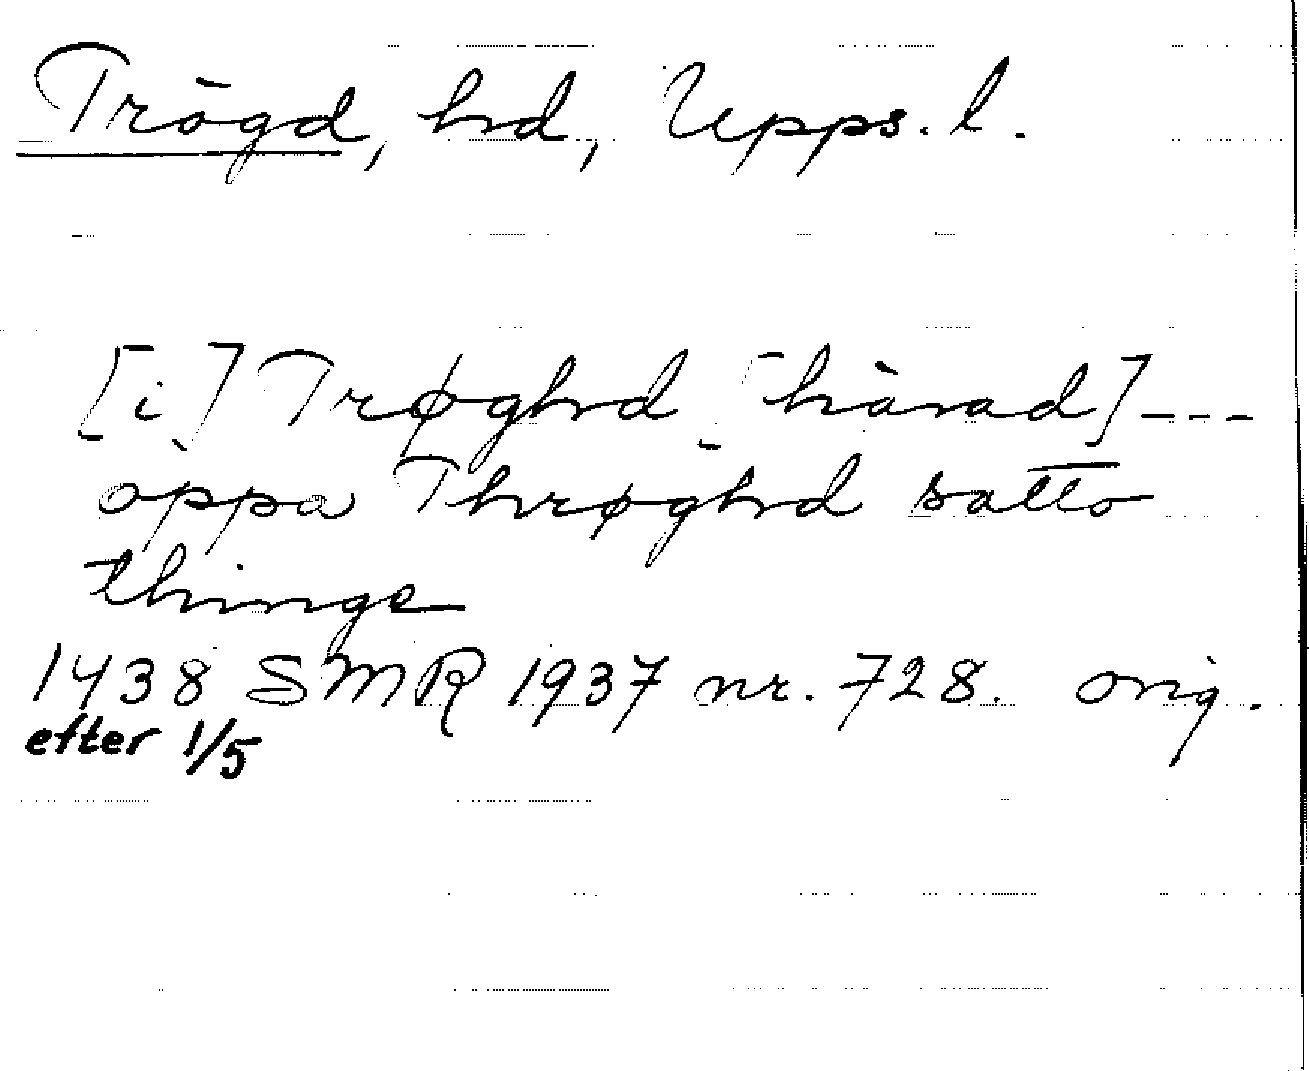 Trögd, hd, Upps. l.
[i] Trøghd [härad] ---
oppa Thrøghd satto
thinge
1438 SMR 1937 nr. 728. orig.
efter 1/5